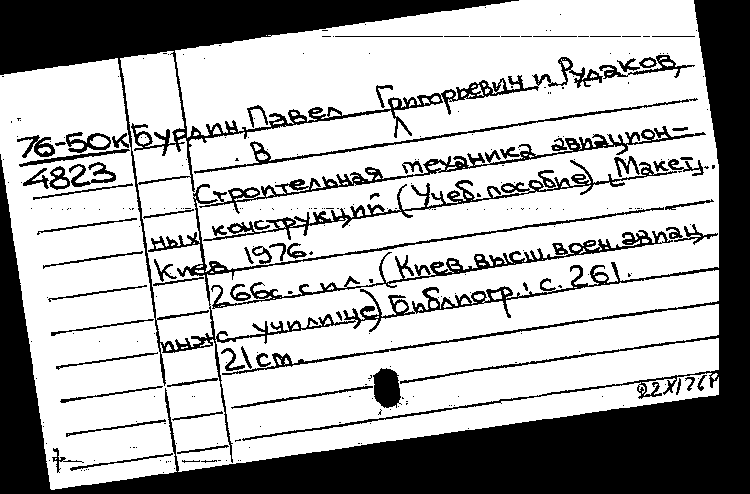 76-50к Бурдин, Павел Григорьевич и Рудаков,
4823 В Л
Строительная механика авиацион-
ных конструкций. (Учеб. пособие). [Макет].
Киев, 1976.
266с. с ил. (Киев. высш. воен. авиац.
инж. училище) Библиогр.: с. 261.
21 см.
22XI76Р